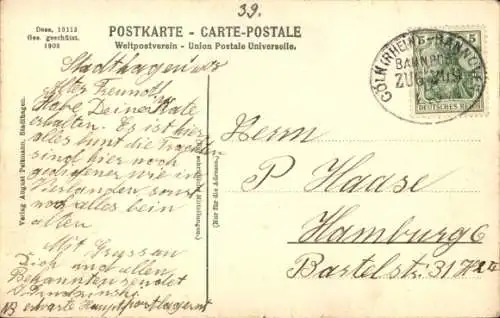 39.
Dess. 13113
Ges. geschützt.
1903
POSTKARTE - CARTE-POSTALE
Weltpostverein - Union Postale Universelle.
5 5
CÖLN (RHEIN) - HANNOVER
BAHNPOST
ZUG
DEUTSCHES REICH
Stadthagen
Alter Freund!
Habe Deine Karte
erhalten. Es ist hier
alles bunt die Trachten
sind hier noch
wie in
Vierlanden sonst
noch alles beim
alten
Mit Gruss an
Dich und allen
Bekannten sendet
NB erwarte Hauptpostlagernd
Verlag August Patzmann, Stadthagen.
(Nur für die Adresse.)
Herrn
P Haase
Hamburg 6
Bartelstr. 31